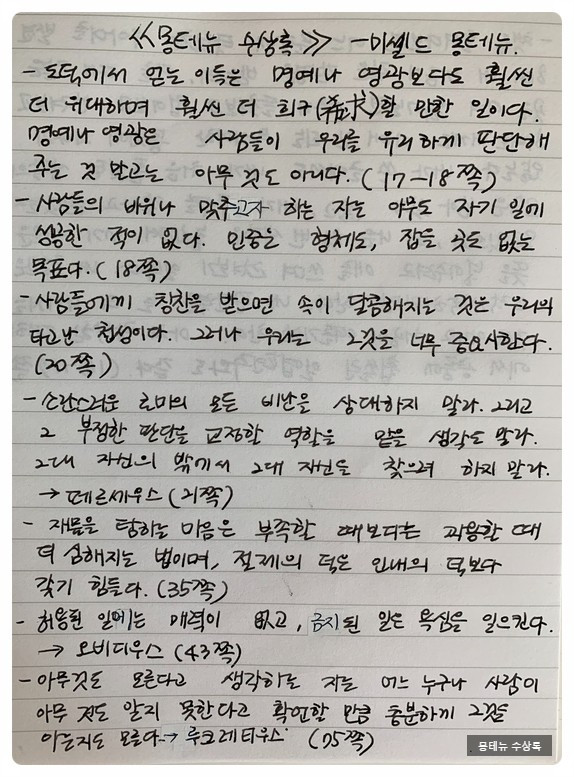 ≪몽테뉴 수상록≫ - 미셸 드 몽테뉴.
- 도덕에서 얻는 이득은 명예나 영광보다도 훨씬
더 위대하며 훨씬 더 희구(希求)할 만한 일이다.
명예나 영광은 사람들이 우리를 유리하게 판단해
주는 것 말고는 아무 것도 아니다. (17-18쪽)
- 사람들의 비위나 맞추고자 하는 자는 아무도 자기 일에
성공한 적이 없다. 인중은 형체도, 잡을 곳도 없는
목표다. (18쪽)
- 사람들에게 칭찬을 받으면 속이 달콤해지는 것은 우리의
타고난 천성이다. 그러나 우리는 그것을 너무 중요시한다.
(20쪽)
- 소란스러운 로마의 모든 비난을 상대하지 말라. 그리고
그 부정한 판단을 교정할 역할을 맡을 생각도 말라.
그대 자신의 밖에서 그대 자신을 찾으려 하지 말라.
→ 페르세우스 (21쪽)
- 재물을 탐하는 마음은 부족할 때보다는 과용할 때
더 심해지는 법이며, 절제의 덕은 인내의 덕보다
갖기 힘들다. (35쪽)
- 허용된 일에는 매력이 없고, 금지된 일은 욕심을 일으킨다.
→ 오비디우스 (43쪽)
- 아무것도 모른다고 생각하는 자는 어느 누구나 사람이
아무 것도 알지 못한다고 확언할 만큼 충분하게 그것을
아는지도 모른다 → 루크레티우스 (75쪽)
몽테뉴 수상록